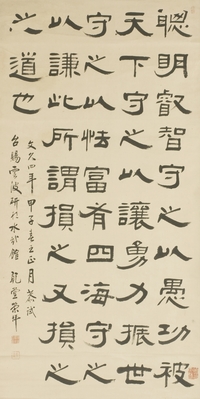 聰明叡智守之以愚功被
天下守之以讓勇力振世
守之以怯富有四海守之
以謙此所謂損之又損之
之道也
文久四年甲子春王正月恭試
台賜雲波研於水竹館